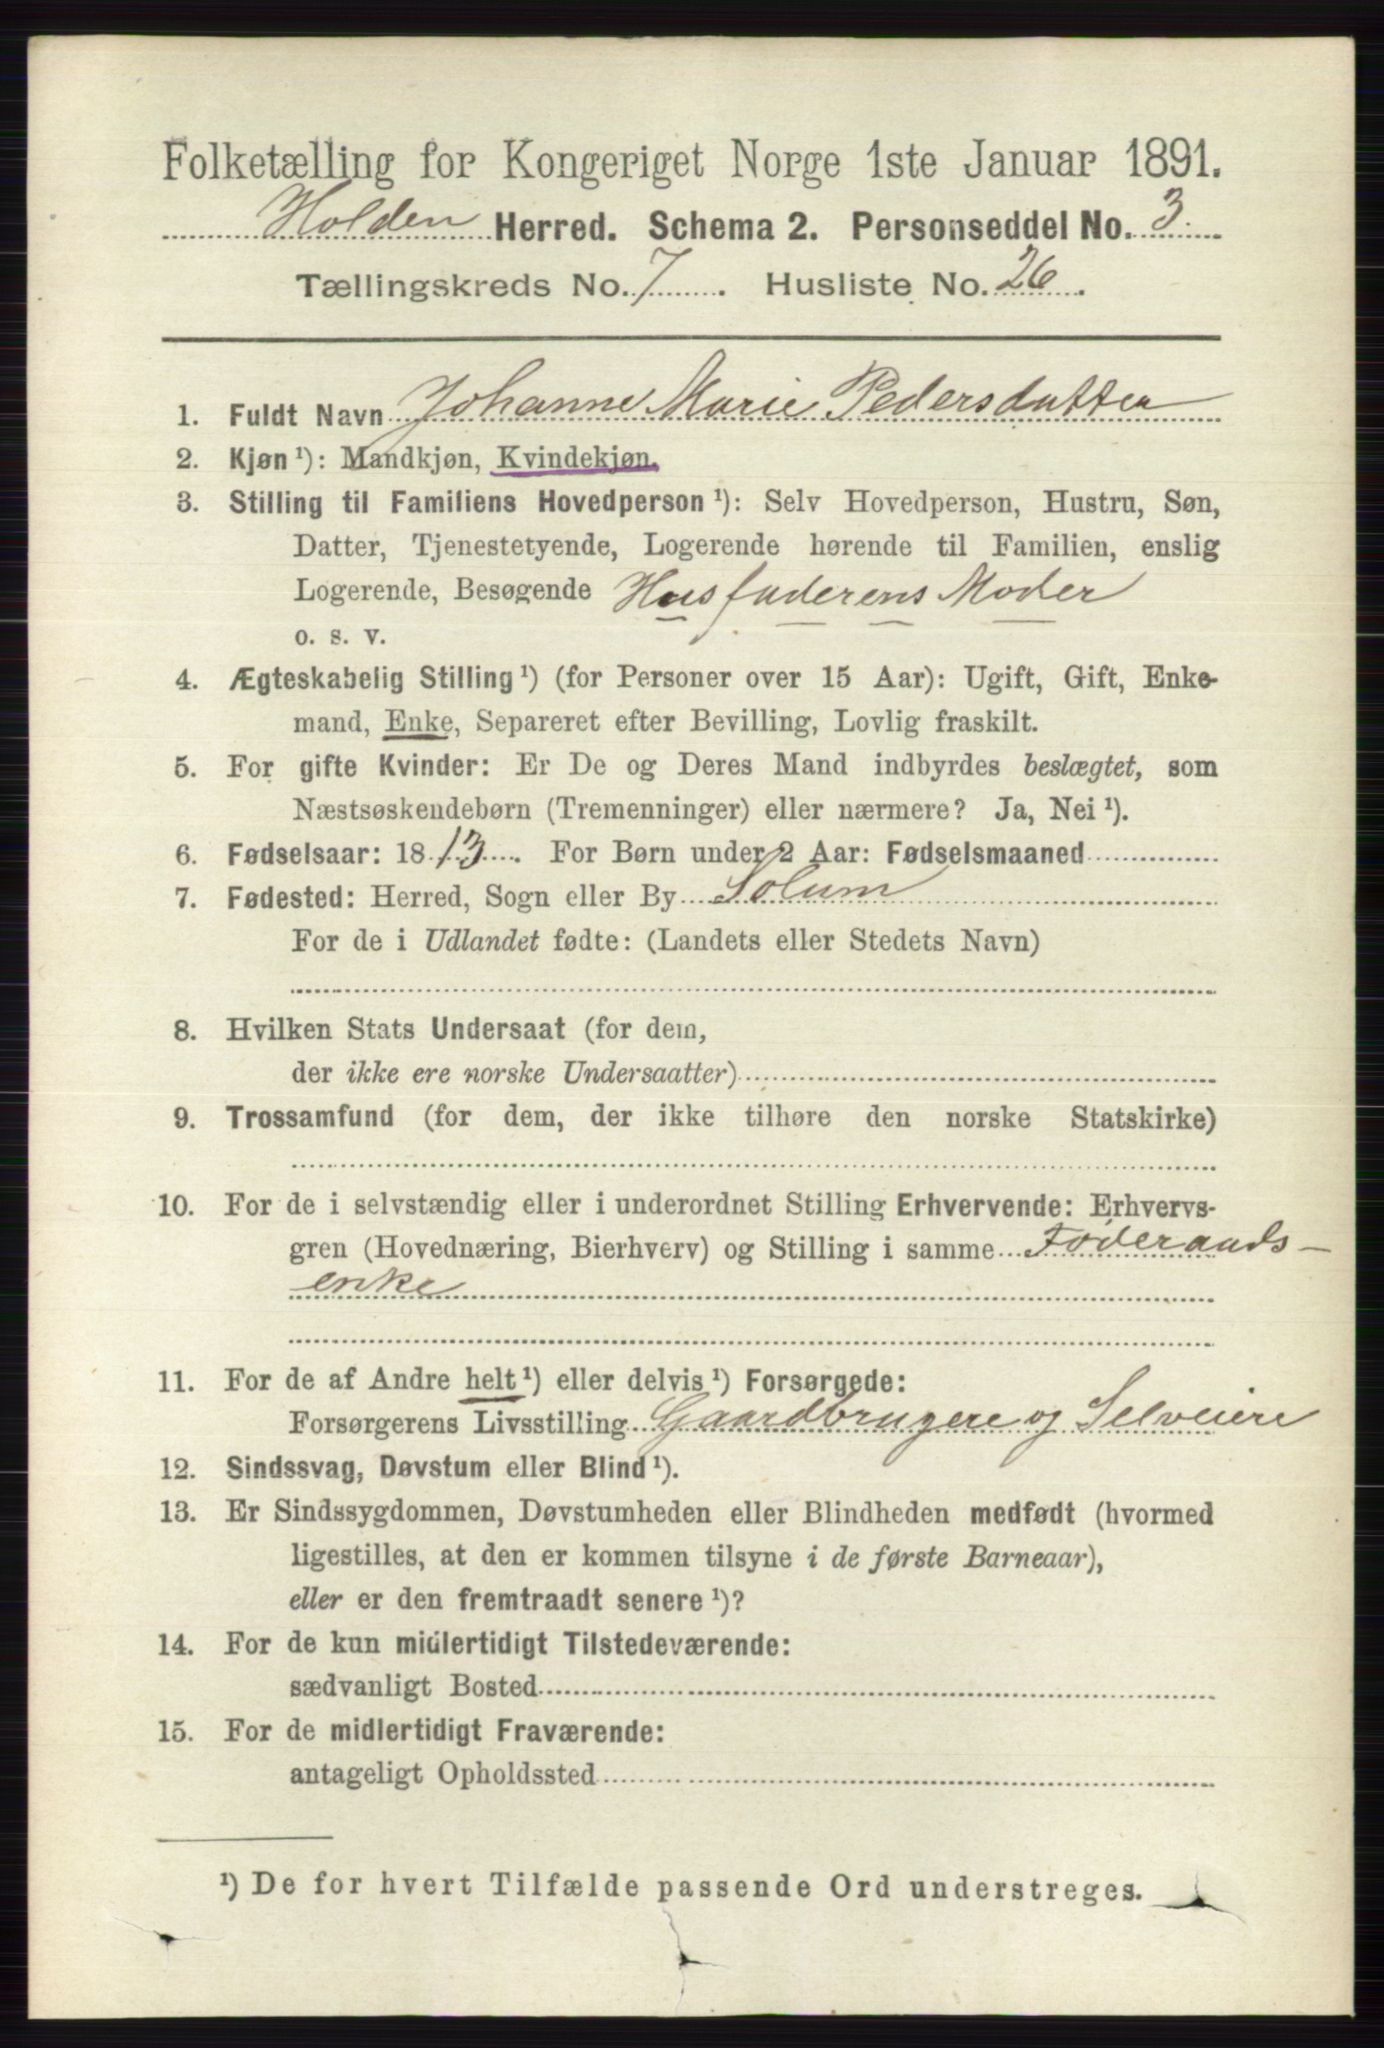 Folketælling for Kongeriget Norge 1ste Januar 1891.
Holden Herred. Schema 2. Personseddel No. 3
Tællingskreds No. 7. Husliste No. 26.
1. Fuldt Navn Johanne Marie Pedersdatter
2. Kjøn¹): Mandkjøn, Kvindekjøn.
3. Stilling til Familiens Hovedperson¹): Selv Hovedperson, Hustru, Søn,
Datter, Tjenestetyende, Logerende hørende til Familien, enslig
Logerende, Besøgende Husfaderens Moder
o. s. v.
4. Ægteskabelig Stilling¹) (for Personer over 15 Aar): Ugift, Gift, Enke-
mand, Enke, Separeret efter Bevilling, Lovlig fraskilt.
5. For gifte Kvinder: Er De og Deres Mand indbyrdes beslægtet, som
Næstsøskendebørn (Tremenninger) eller nærmere? Ja, Nei¹).
6. Fødselsaar: 1813. For Børn under 2 Aar: Fødselsmaaned
7. Fødested: Herred, Sogn eller By Solum
For de i Udlandet fødte: (Landets eller Stedets Navn)
8. Hvilken Stats Undersaat (for dem,
der ikke ere norske Undersaatter)
9. Trossamfund (for dem, der ikke tilhøre den norske Statskirke)
10. For de i selvstændig eller i underordnet Stilling Erhvervende: Erhvervs-
gren (Hovednæring, Bierhverv) og Stilling i samme Føderaads-
enke
11. For de af Andre helt¹) eller delvis¹) Forsørgede:
Forsørgerens Livsstilling Gaardbrugere og Selveiere
12. Sindssvag, Døvstum eller Blind¹).
13. Er Sindssygdommen, Døvstumheden eller Blindheden medfødt (hvormed
ligestilles, at den er kommen tilsyne i de første Barneaar),
eller er den fremtraadt senere¹)?
14. For de kun midlertidigt Tilstedeværende:
sædvanligt Bosted
15. For de midlertidigt Fraværende:
antageligt Opholdssted
¹) De for hvert Tilfælde passende Ord understreges.